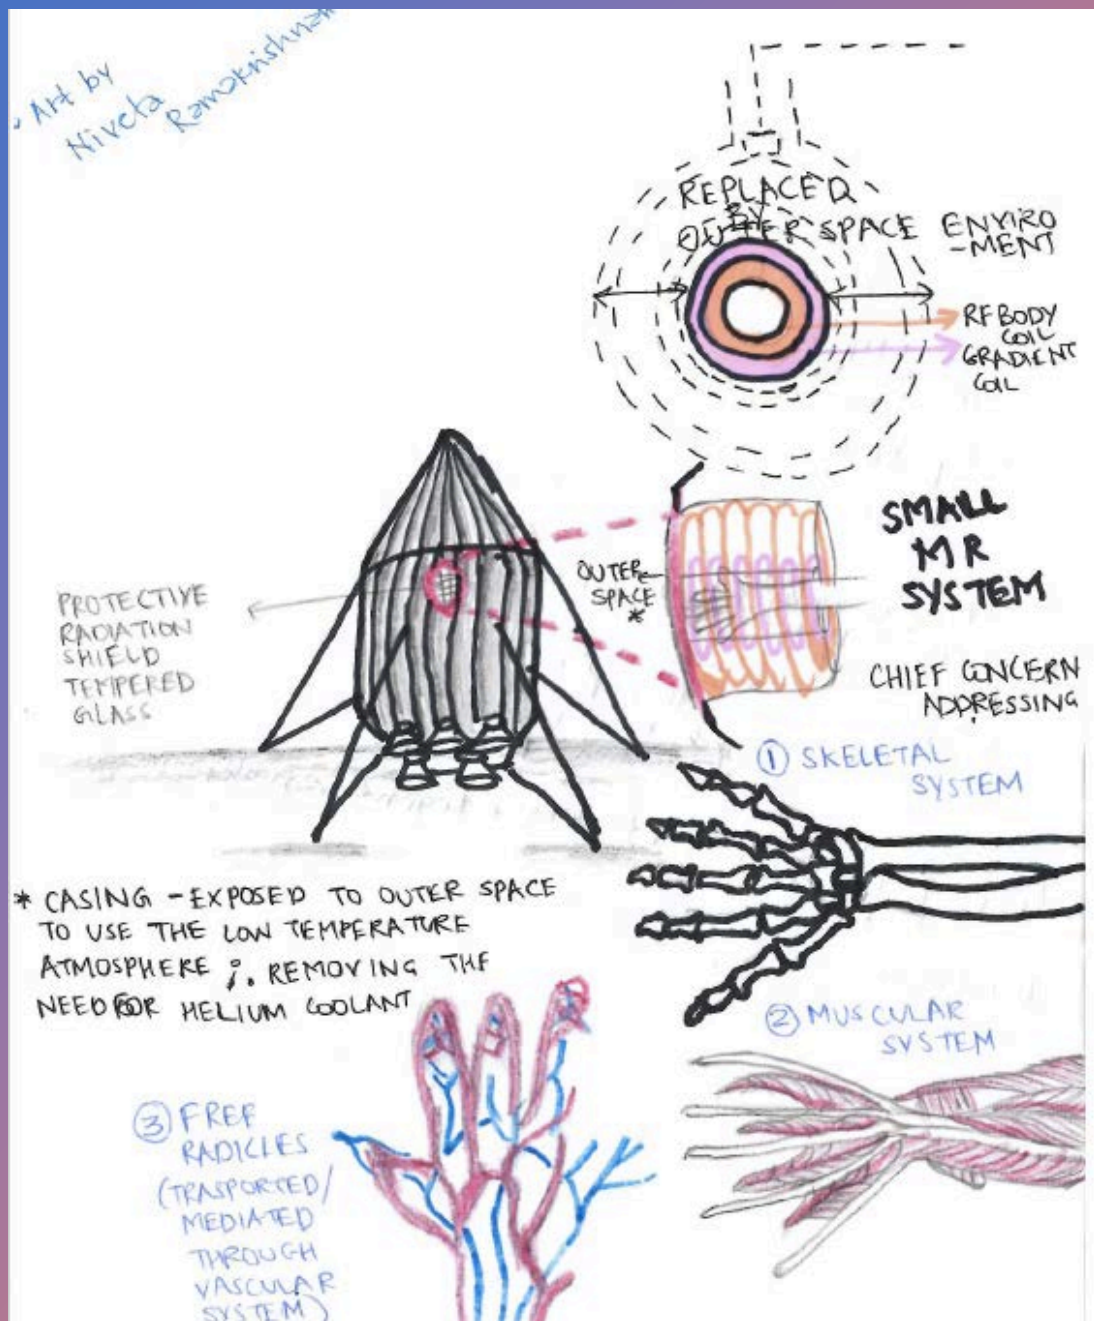 • Art by
Niveta
Ramakrishnan
REPLACED
BY
OUTER SPACE ENVIRO
-MENT
RF BODY
COIL
GRADIENT
COIL
SMALL
MR
SYSTEM
OUTER
SPACE
*
PROTECTIVE
RADIATION
SHIELD
TEMPERED
GLASS
CHIEF CONCERN
ADDRESSING
① SKELETAL
SYSTEM
* CASING - EXPOSED TO OUTER SPACE
TO USE THE LOW TEMPERATURE
ATMOSPHERE ;. REMOVING THE
NEED FOR HELIUM COOLANT
② MUSCULAR
SYSTEM
③ FREE
RADICLES
(TRASPORTED/
MEDIATED
THROUGH
VASCULAR
SYSTEM)